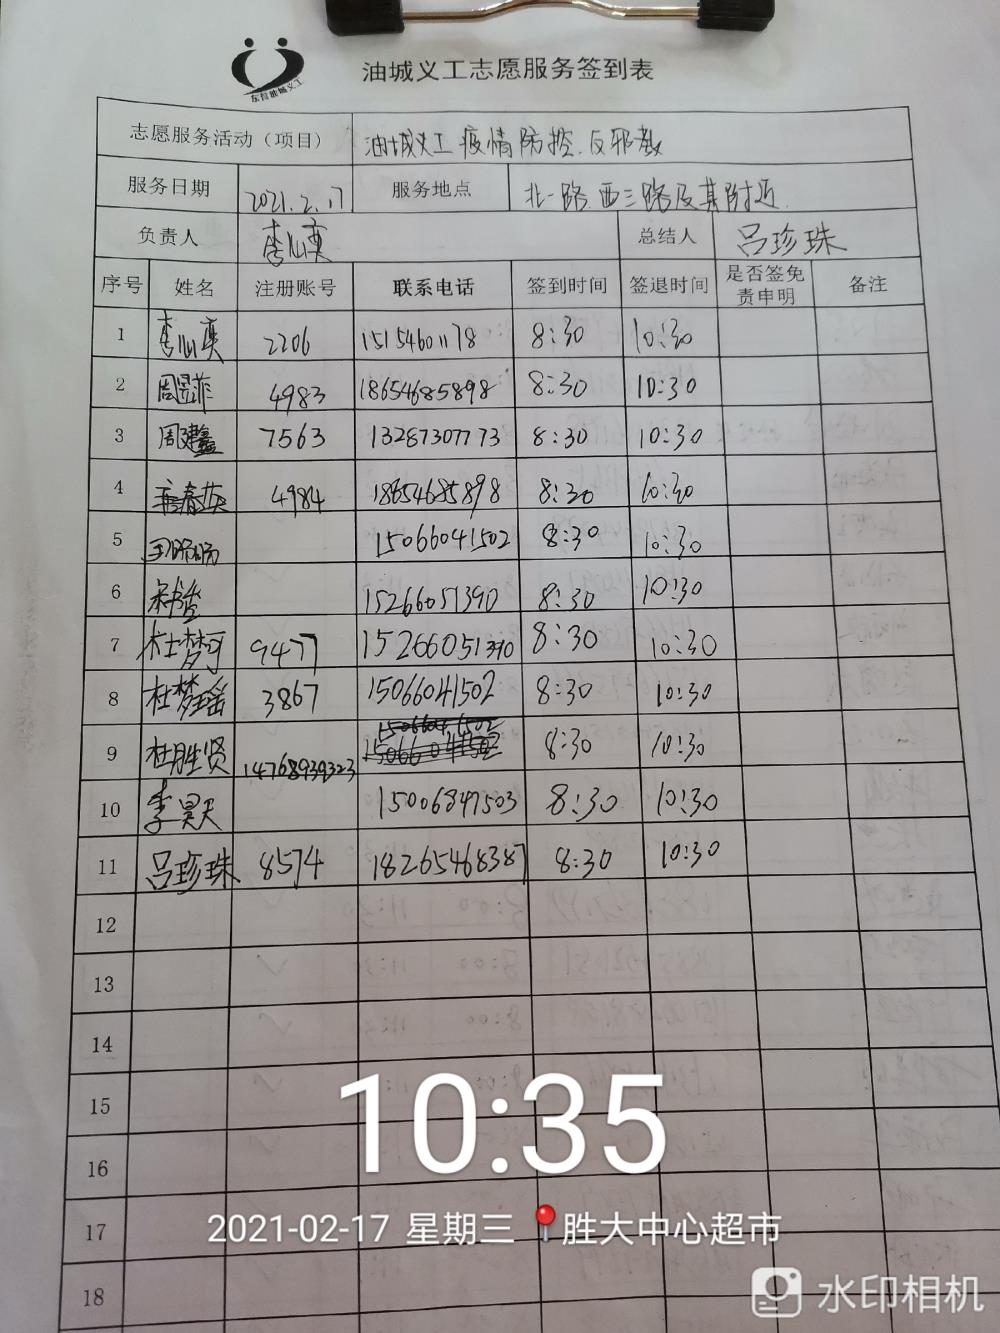 东营油城义工
油城义工志愿服务签到表
志愿服务活动（项目） 油城义工 疫情防控.反邪教
服务日期 2021.2.17 服务地点 北一路.西三路及其附近
负责人 李心英 总结人 吕珍珠
序号 姓名 注册账号 联系电话 签到时间 签退时间 是否签免责申明 备注
1 李心英 2206 15154601178 8:30 10:30
2 周昱菲 4983 18654685898 8:30 10:30
3 周建鑫 7563 13287307773 8:30 10:30
4 4984 18654685898 8:30 10:30
5 15066041502 8:30 10:30
6 15266051390 8:30 10:30
7 杜梦可 9477 15266051390 8:30 10:30
8 杜梦瑶 3867 15066041502 8:30 10:30
9 杜胜贤 14768939323 8:30 10:30
10 李昊天 15006847503 8:30 10:30
11 吕珍珠 8574 18265468387 8:30 10:30
12
13
14
15
16
17
18
10:35
2021-02-17 星期三 胜大中心超市
水印相机